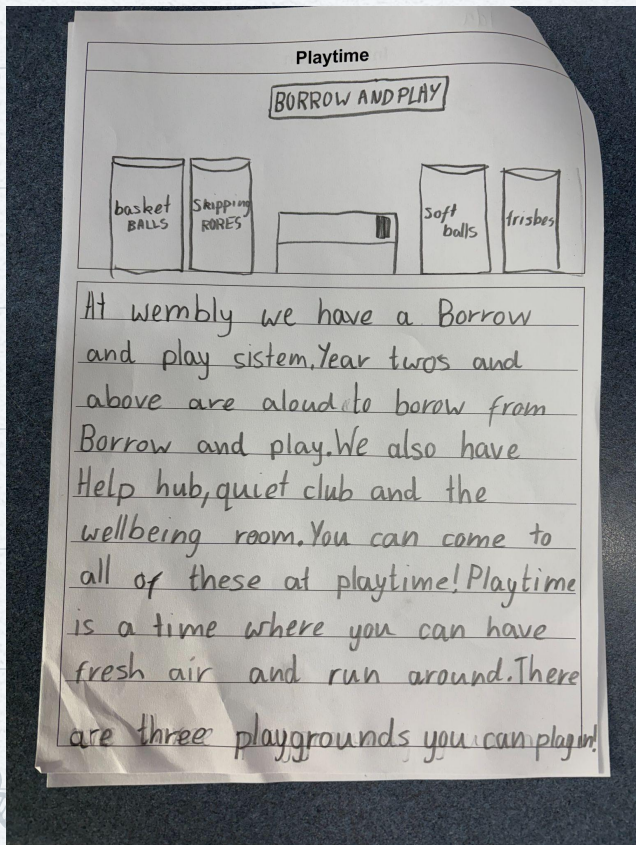 Playtime
BORROW AND PLAY
basket
BALLS
Skipping
RORES
Soft
balls
frisbes
At wembly we have a Borrow
and play sistem. Year twos and
above are aloud to borow from
Borrow and play. We also have
Help hub, quiet club and the
wellbeing room. You can come to
all of these at playtime! Playtime
is a time where you can have
fresh air and run around. There
are three playgrounds you can play in!